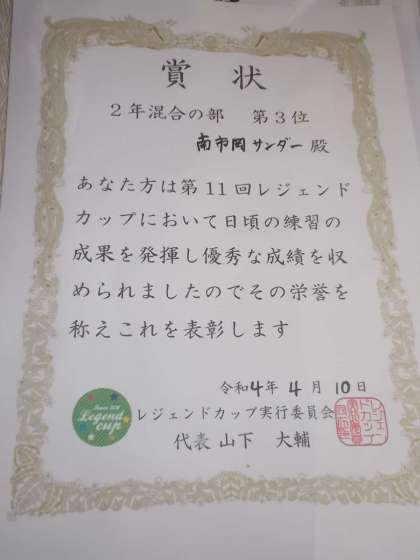 賞状
2年混合の部 第3位
南市岡サンダー 殿
あなた方は第11回レジェンド
カップにおいて日頃の練習の
成果を発揮し優秀な成績を収
められましたのでその栄誉を
称えこれを表彰します
令和4年4月10日
Legend
cup
レジェンドカップ実行委員会
代表 山下 大輔